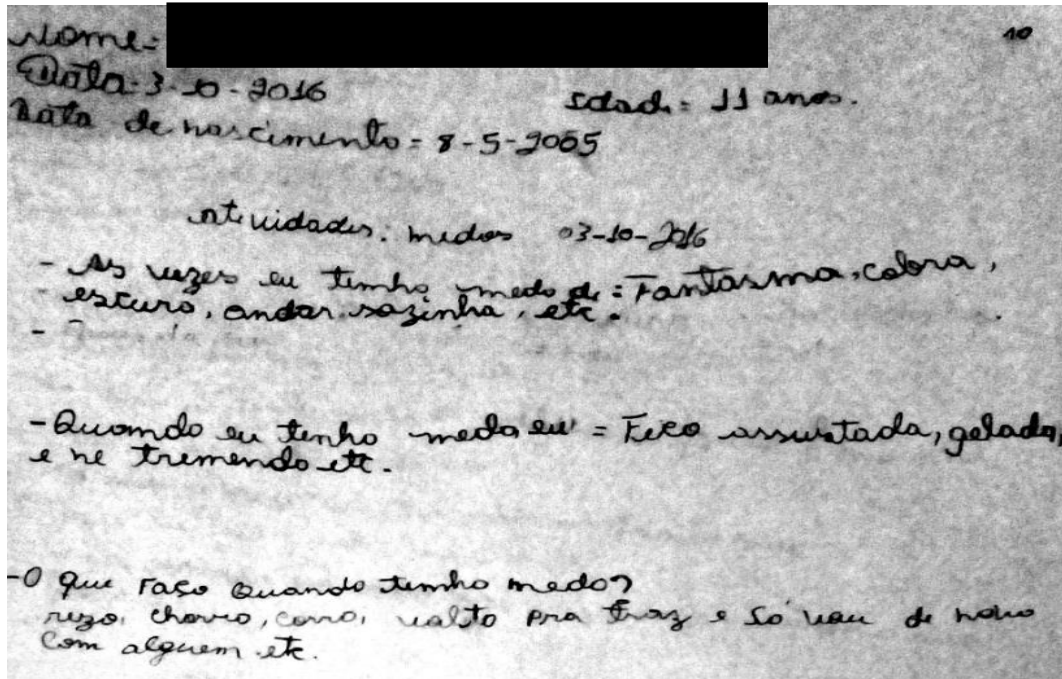 Nome= 10
Data: 3-10-2016 Idade= 11 anos.
Data de nascimento = 8-5-2005
atividades: medos 03-10-2016
- As vezes eu tenho medo de: Fantasma, cobra,
escuro, andar sozinha, etc.
-
- Quando eu tenho medo eu = Fico assustada, gelada,
e me tremendo etc.
-O que Faço Quando tenho medo?
rezo, chorro, corro, volto pra traz e só vou de novo
com alguem etc.